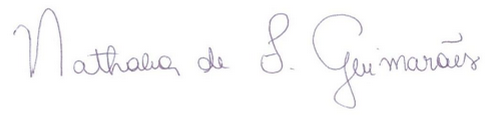 Nathalia de S. Guimarães